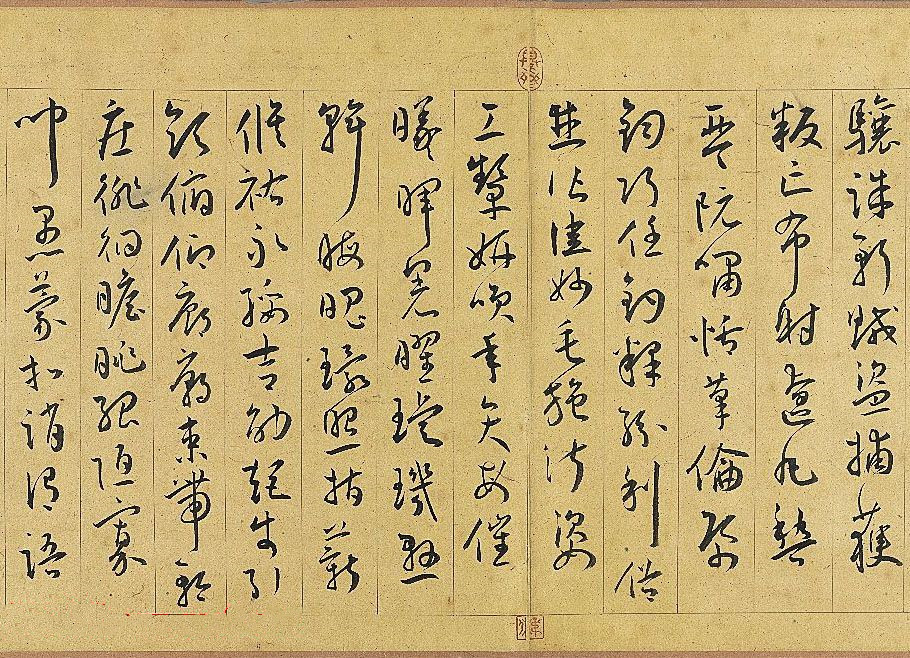 驤誅斬賊盜捕獲
叛亡布射遼丸嵇
琴阮嘯恬筆倫紙
鈞巧任釣釋紛利俗
並皆佳妙毛施淑姿
工顰妍咲年矢每催
曦暉晃曜璇璣懸
斡晦魄環照指薪
脩祜永綏吉劭矩步引
領俯仰廊廟束帶矜
莊徘徊瞻眺孤陋寡
聞愚蒙等誚謂語